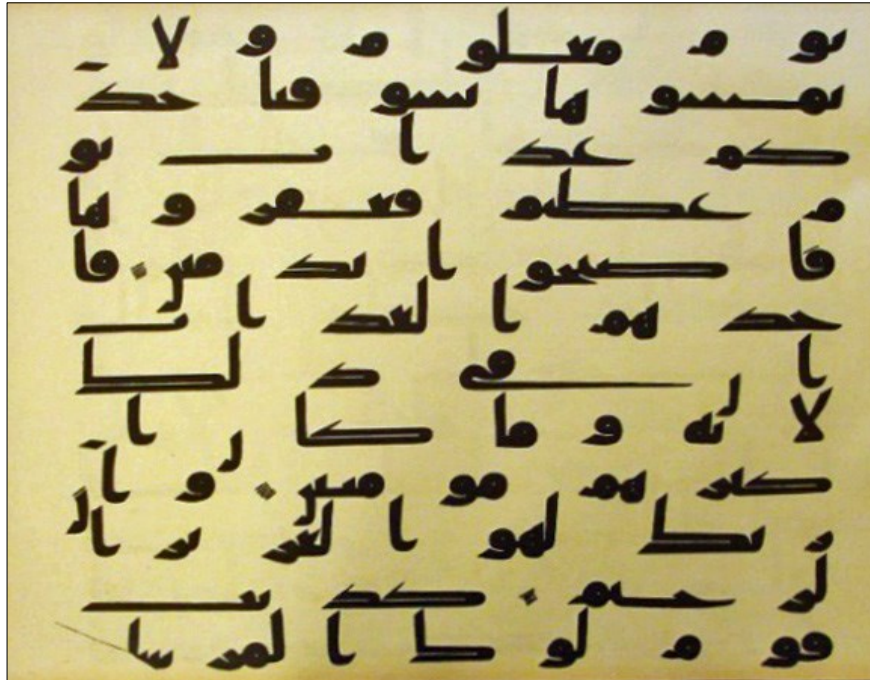 يوم معلوم ولا
تمسوها بسو فياخذ
كم عذاب يو
م عظيم فعقروها
فاصبحوا ندمين فا
خذهم العذاب
ان في ذلك
لايه وما كان ا
كثرهم مومنين وان
ربك لهو العزيز ا
لرحيم كذبت
قوم لوط المرسل